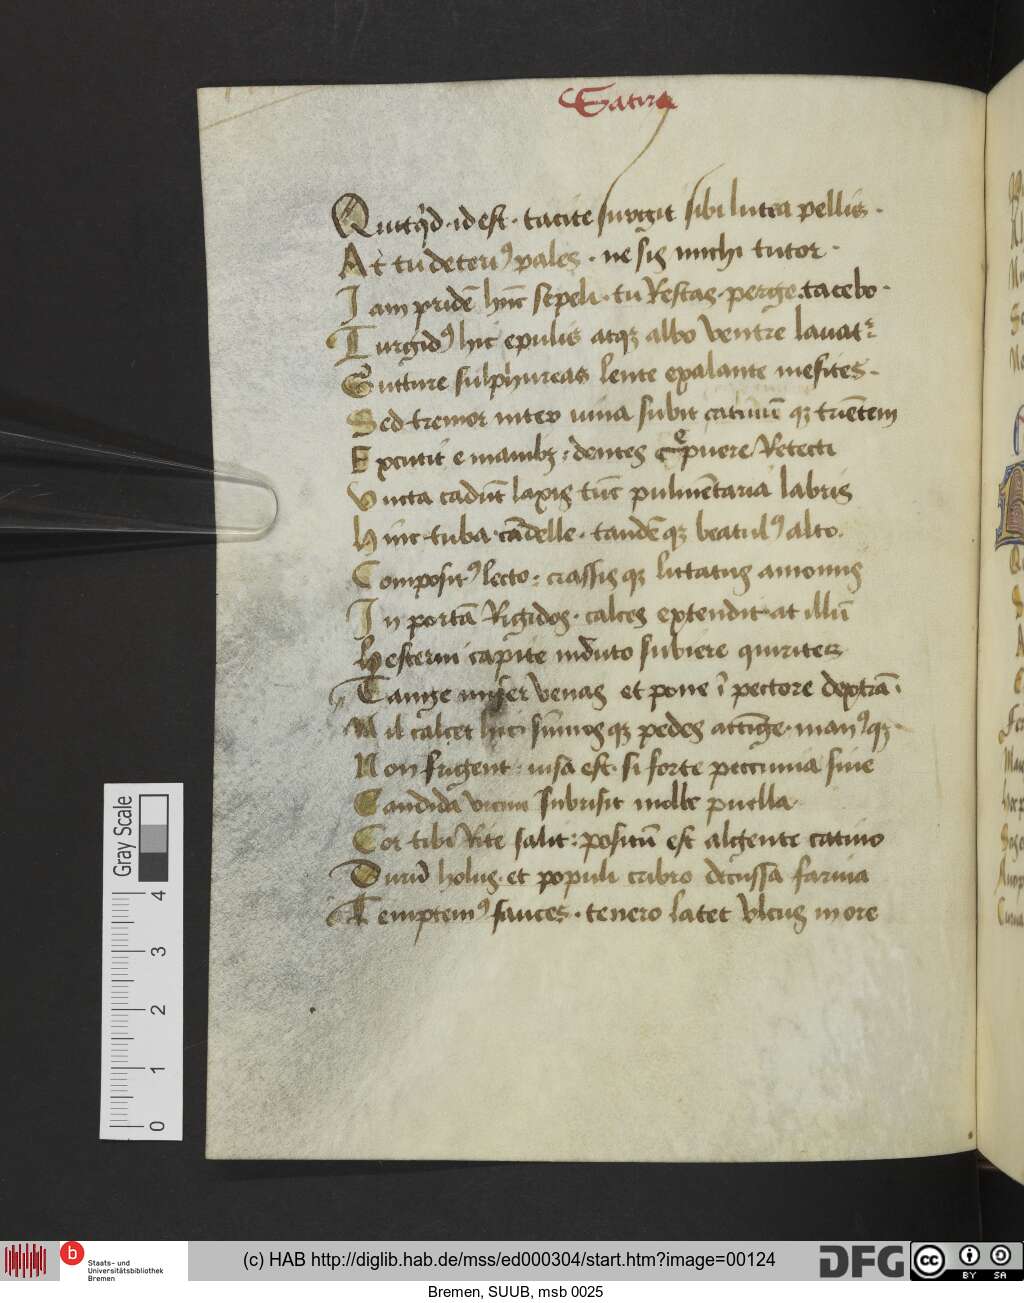 Satira
Quitqͥd · id est · tacite surgit sibi lutea pellis ·
At tu deteriꝰ pales · ne sis michi tutor ·
Iam pridē hūc sepeli · tu Restas · perge · tacebo ·
Turgidꝰ hic epulis atqꝫ albo ventre lauatᷣ
Gutture sulphureas lente exalante mefites ·
Sed tremor inter uina subit calidūqꝫ trientem
Excutit e manibꝫ : dentes crepuere Retecti
Vncta cadūt laxis tūc pulmētaria labris
Hinc tuba · cādelle · tandēqꝫ beatulꝰ alto ·
Compositꝰ lecto · crassisqꝫ lutatus amomis
In portā Rigidos · calces extendit · at illū
Hesterni capite induto subiere quirites
Tange miser venas et pone ī pectore dextrā ·
Nil calcet hic · sūmosqꝫ pedes attīge · manꝰqꝫ ·
Non frigent : uisa est · si forte peccunia siue
Candida vicini Subrisit molle puella
Cor tibi Rite salit : positū est algente catino
Durū holus · et populi cribro decussa farina
Temptemꝰ fauces · tenero latet vlcus in ore
Gray Scale
4
3
2
1
0
b
Staats- und
Universitätsbibliothek
Bremen
(c) HAB http://diglib.hab.de/mss/ed000304/start.htm?image=00124
DFG
cc
BY SA
Bremen, SUUB, msb 0025